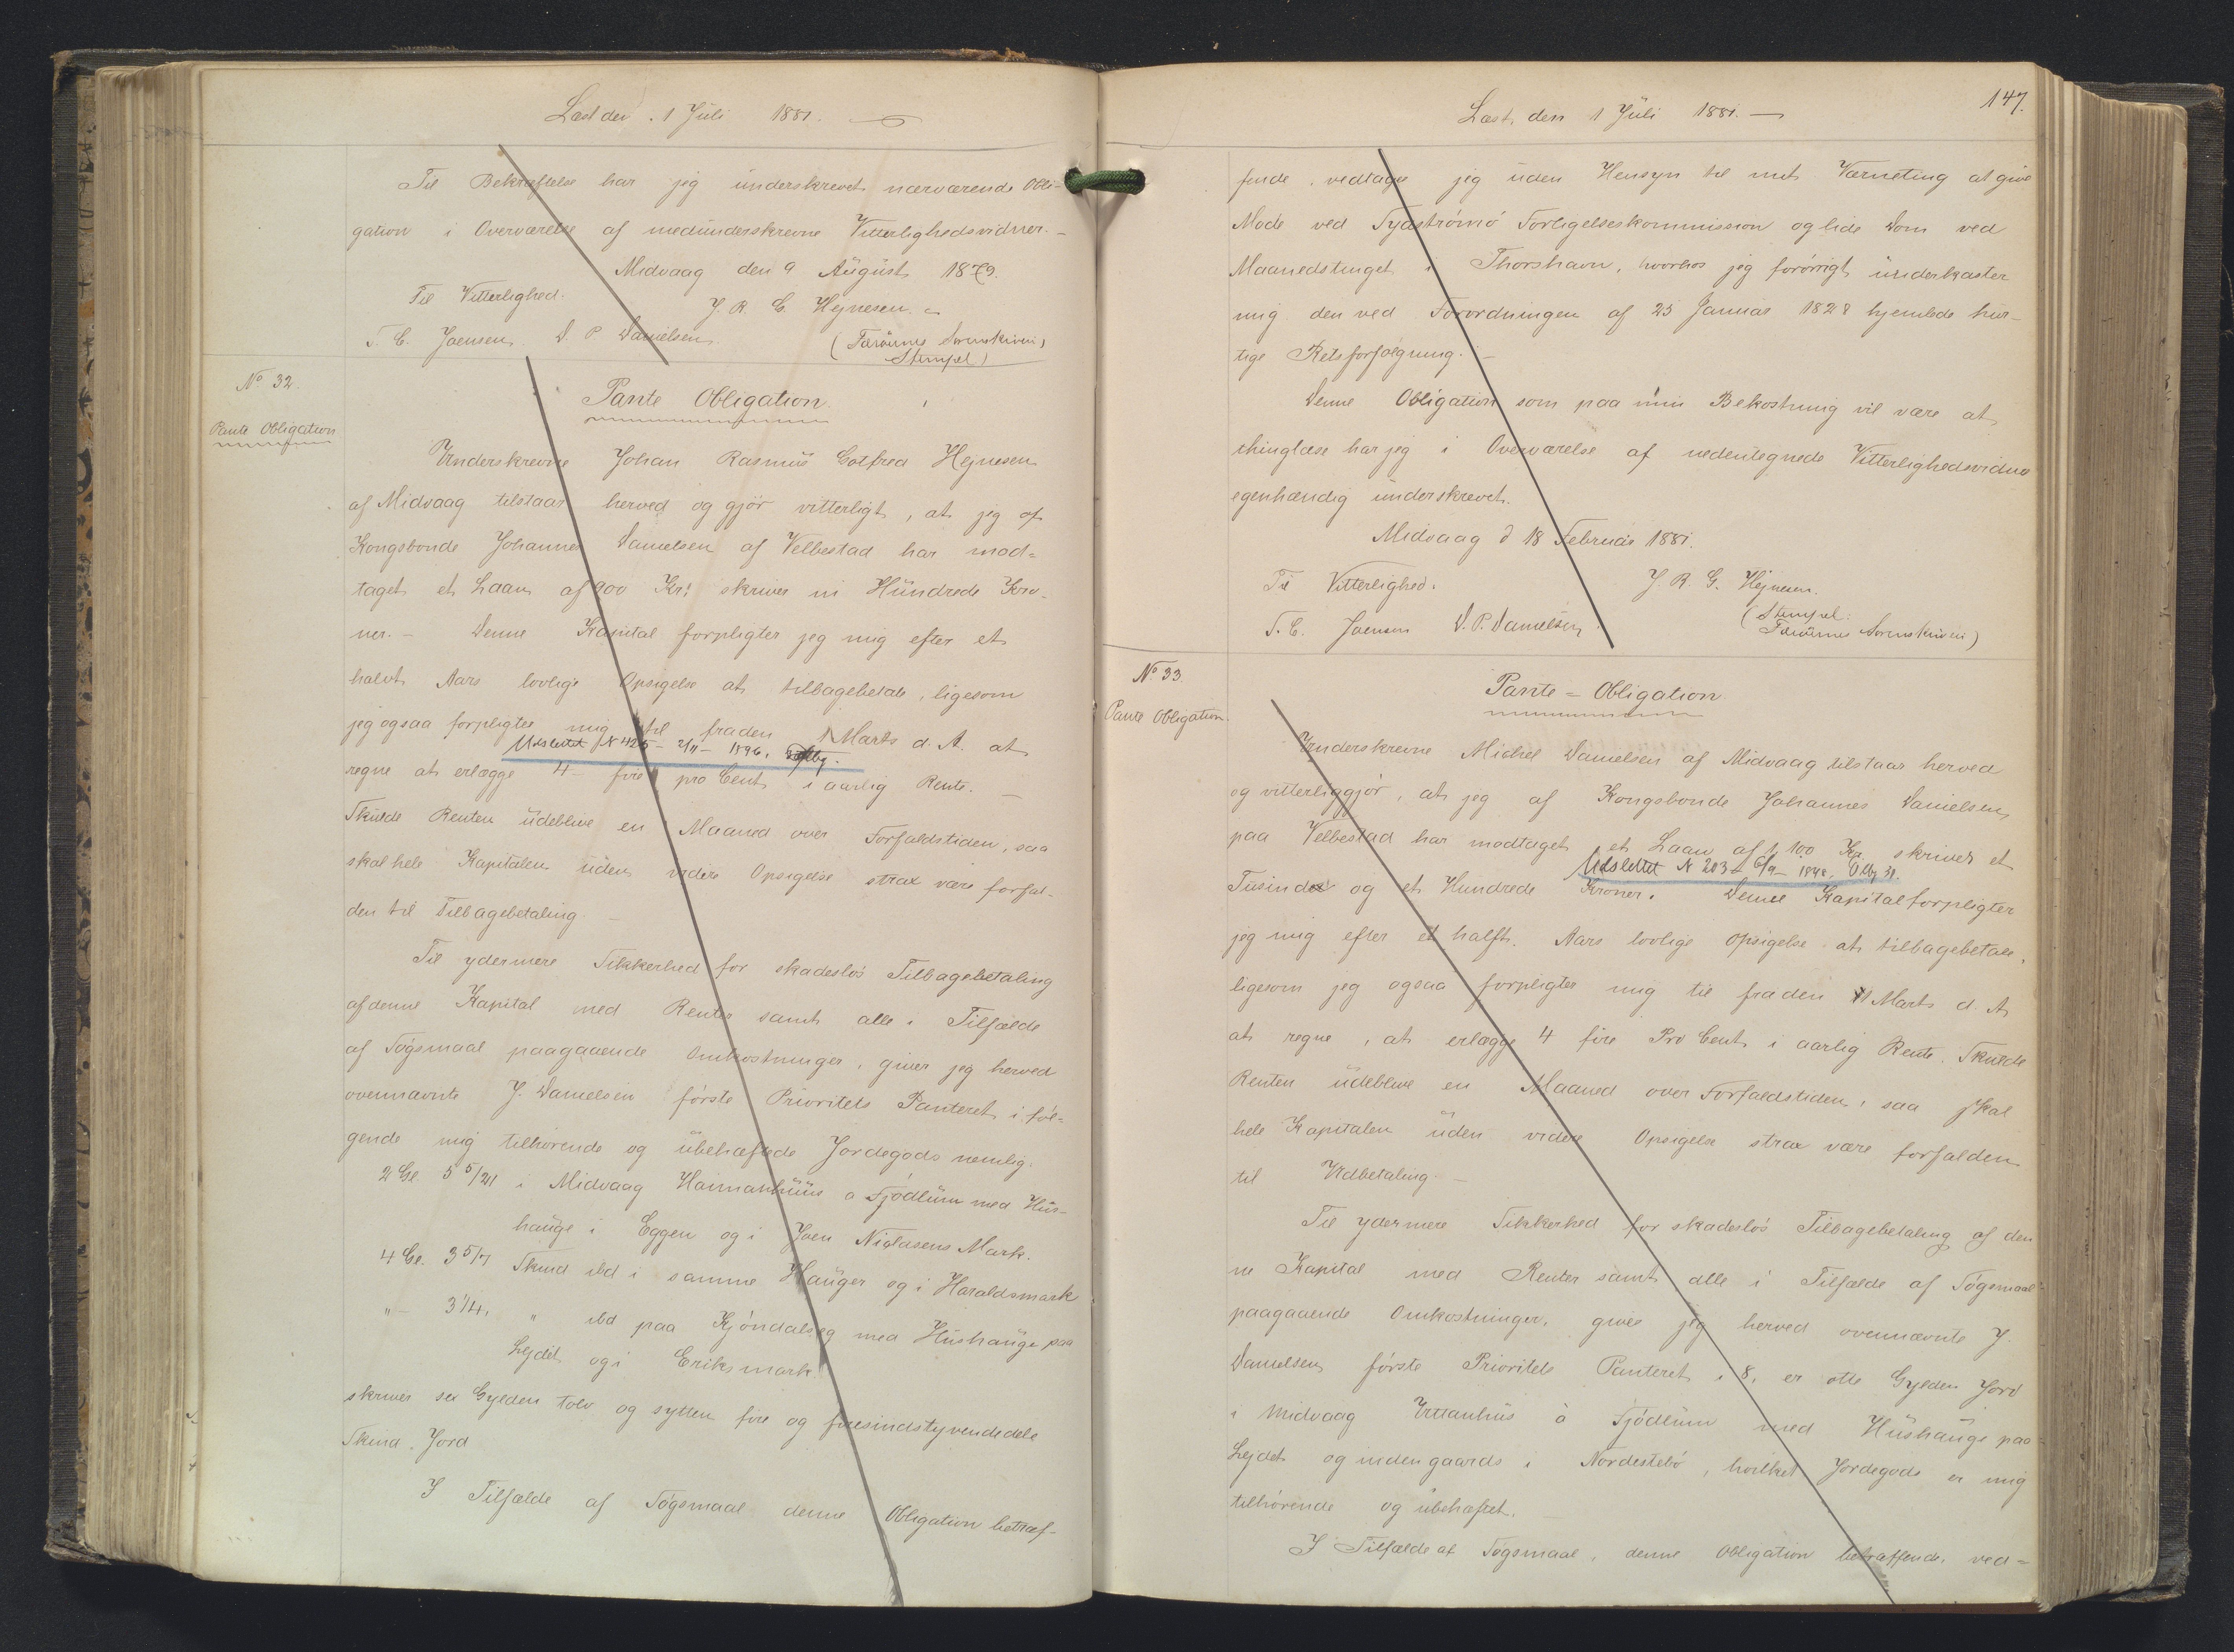 Læst den 1 Juli 1881.
Til Bekræftelse har jeg underskrevet nærværende Obli-
gation i Overværelse af medunderskrevne Vitterlighedsvidner. -
Midvaag den 9 August 1879.
Til Vitterlighed.
J. R. G. Hejnesen.
T. C. Joensen. D. P. Danielsen.
(Færøernes Sorenskriveri
Stempel)
No 32.
Pante Obligation
Pante Obligation.
Underskrevne Johan Rasmus Gotfred Hejnesen
af Midvaag tilstaar herved og gjör vitterligt, at jeg af
Kongsbonde Johannes Danielsen af Velbestad har mod-
taget et Laan af 900 Kr: skriver ni Hundrede Kro-
ner. - Denne Kapital forpligter jeg mig efter et
halvt Aars lovlige Opsigelse at tilbagebetale, ligesom
jeg ogsaa forpligter mig til fraden 1 Marts d. A. at
Udslettet N 425 - 2/11 - 1896.
regne at erlægge 4 - fire pro Cent i aarlig Rente. -
Skulde Renten udeblive en Maaned over Forfaldstiden, saa
skal hele Kapitalen uden videre Opsigelse strax være forfal-
den til Tilbagebetaling. -
Til ydermere Sikkerhed for skadeslös Tilbagebetaling
af denne Kapital med Renter samt alle i Tilfælde
af Sögsmaal paagaaende Omkostninger, giver jeg herved
ovennævnte J. Danielsen förste Prioritets Panteret i föl-
gende mig tilhörende og übehæftede Jordegods nemlig:
2 Gl. 5 5/21 i Midvaag Haimanhüus a Fjödlum med Hus-
hauge i Eggen og i Joen Niclasens Mark.
4 Gl. 3 5/7 Skind ibd i samme Hauger og i Haraldsmark
" - 3 1/4. " ibd paa Kjöndalseg med Hushauge paa
Lejdet og i Eriksmark.
skriver sex Gylden tolv og sytten fire og firesindstyvendedele
Skind Jord
I Tilfælde af Sögsmaal denne Obligation betræf-
147.
Læst, den 1 Juli 1881. -
fende, vedtager jeg uden Hensyn til mit Værneting at give
Möde ved Sydströmö Forligelseskommission og lide Dom ved
Maanedstinget i Thorshavn, hvorhos jeg forövrigt underkaster
mig den ved Forordningen af 25 Januar 1828 hjemlede hur-
tige Retsforfölgning. -
Denne Obligation som paa min Bekostning vil være at
thinglæse har jeg i Overværelse af nedentegnede Vitterlighedsvidne
egenhændig underskrevet.
Midvaag d 18 Februar 1881.
Til Vitterlighed.
J R. G. Hejnesen.
T. C. Joensen D. P. Danielsen.
(Stempel:
Færöernes Sorenskriveri)
No 33.
Pante Obligation.
Pante - Obligation
Underskrevne Michel Danielsen af Midvaag tilstaar herved
og vitterliggjör, at jeg af Kongsbonde Johannes Danielsen
paa Velbestad har modtaget et Laan af 1,100 Kr skriver et
Udslettet N 203
Tusinde og et Hundrede Kroner. Denne Kapital forpligter
jeg mig efter et halft. Aars lovlige Opsigelse at tilbagebetale,
ligesom jeg ogsaa forpligter mig til fraden 11 Marts d. A
at regne, at erlægge 4 fire Pro Cent i aarlig Rente. Skulde
Renten udeblive en Maaned over Forfaldstiden, saa skal
hele Kapitalen uden videre Opsigelse strax være forfalden
til Udbetaling. -
Til ydermere Sikkerhed for skadeslös Tilbagebetaling af den
ne Kapital med Renter samt alle i Tilfælde af Sögsmaal
paagaaende Omkostninger, giver jeg herved ovennævnte J.
Danielsen förste Prioritets Panteret i 8, er otte Gylden Jord
i Midvaag Uttanhus à Fjödlum med Hushauge paa
Lejdet og indengaards i Nordestebö, hvilket Jordegods er mig
tilhörende og übehæftet. -
I Tilfælde af Sögsmaal, denne Obligation betræffende, ved=